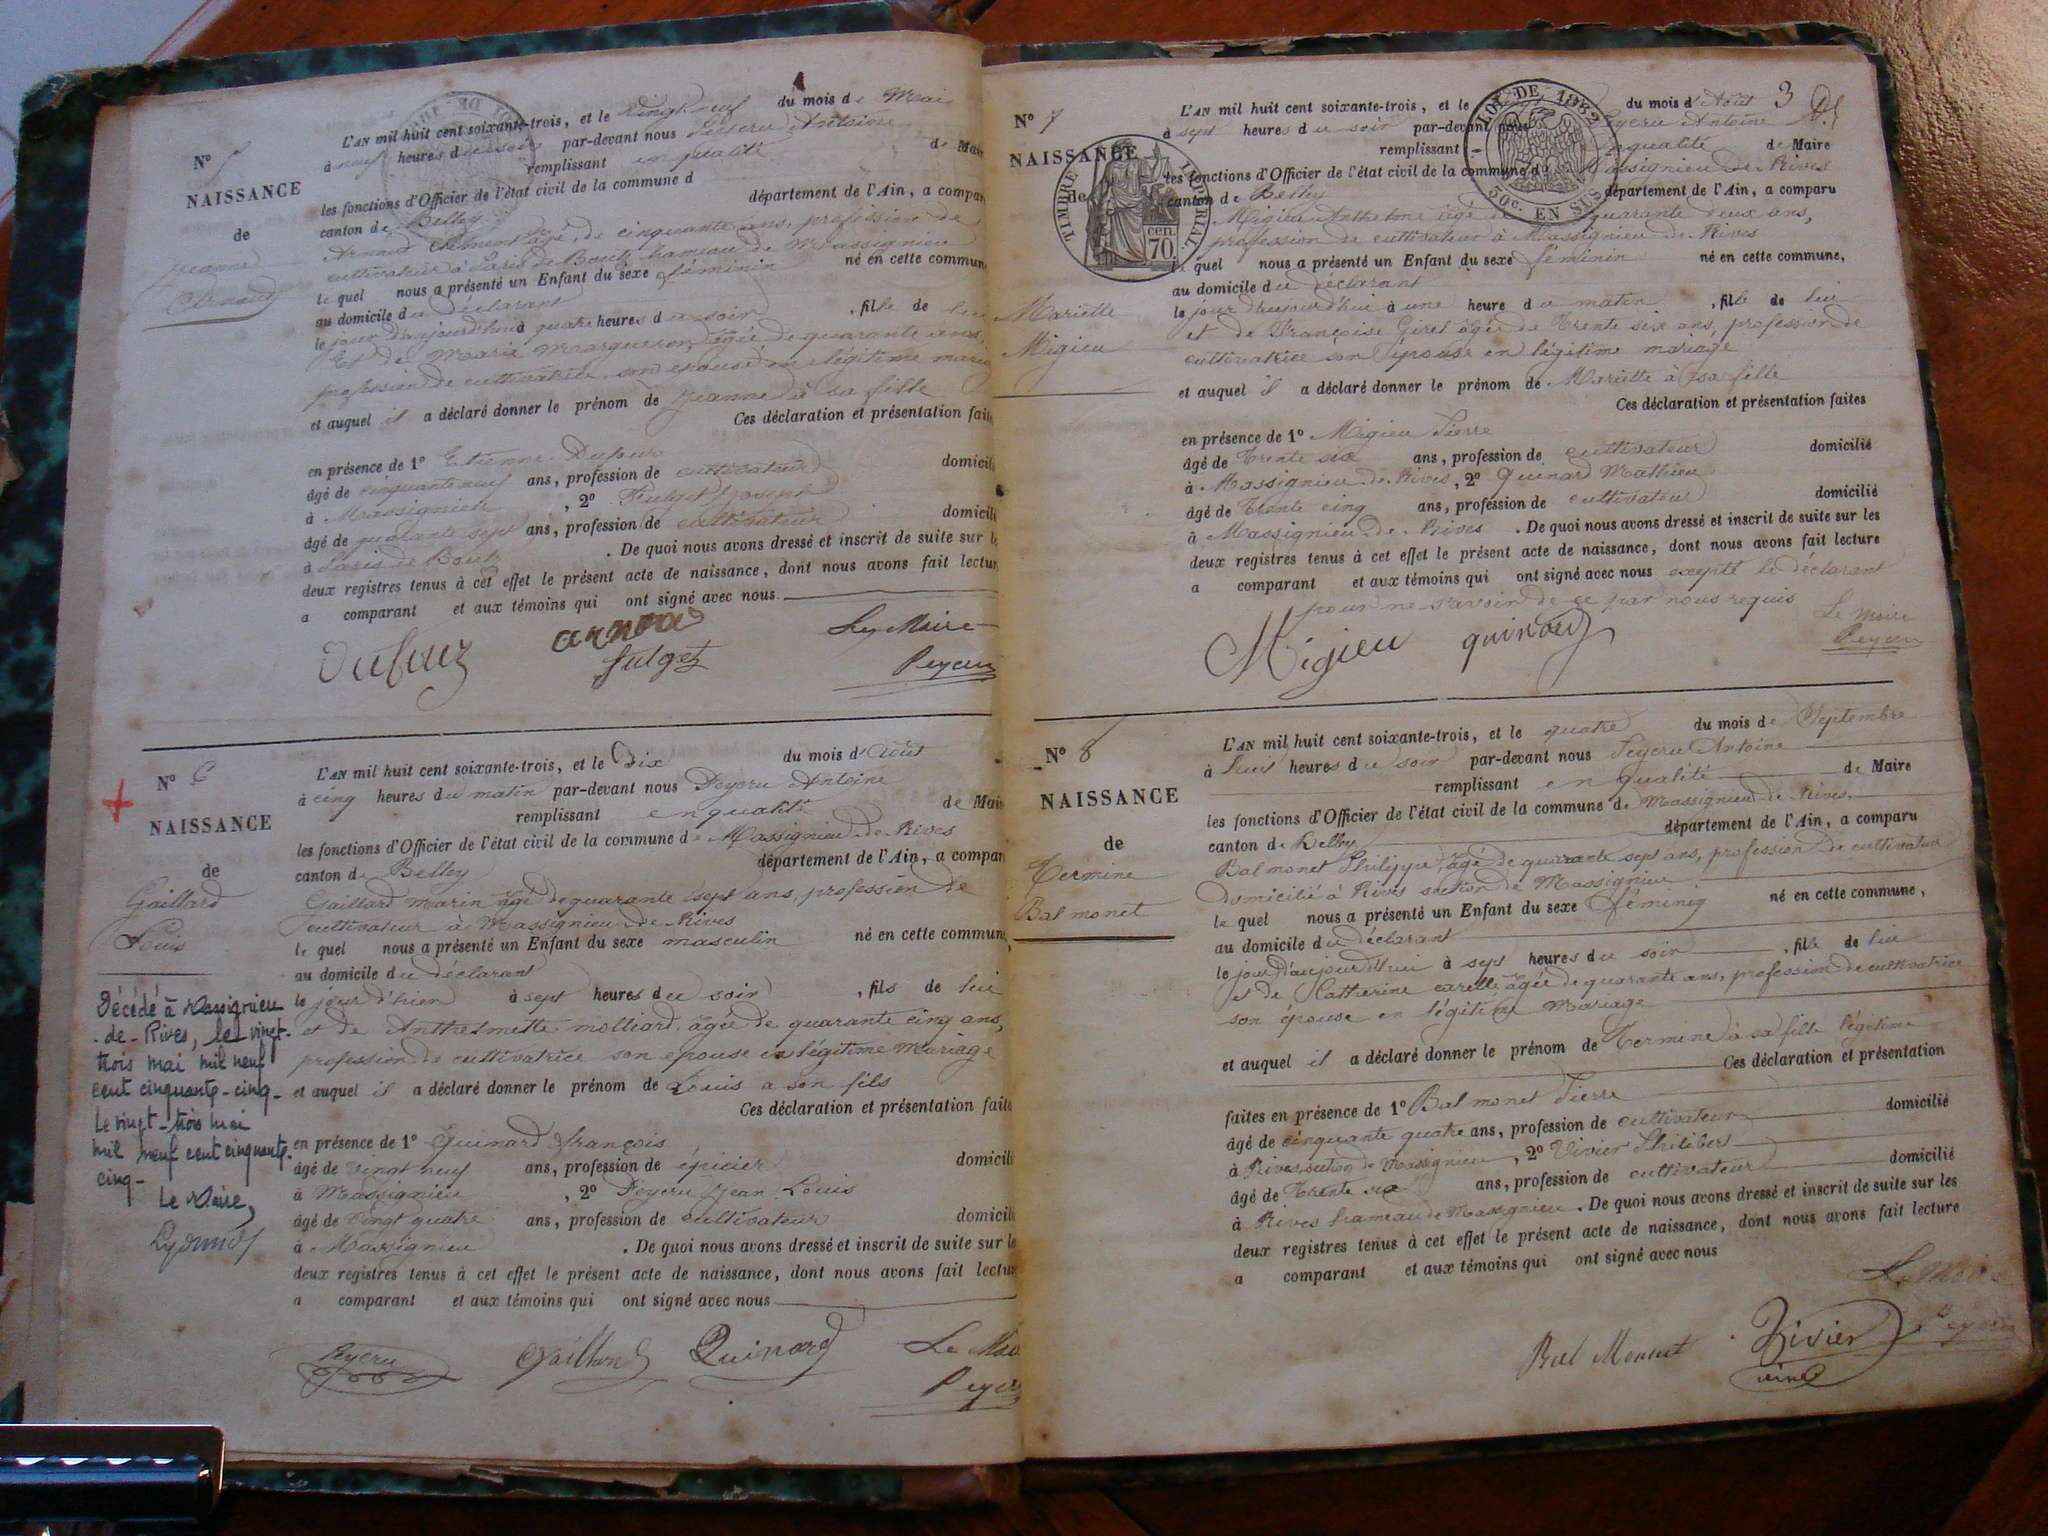 N° 5
NAISSANCE
de
Jeanne
Arnaud
L'AN mil huit cent soixante-trois, et le vingt neuf du mois de Mai
à neuf heures du soir par-devant nous Peyeru Antoine
remplissant en qualité de Maire
les fonctions d'Officier de l'état civil de la commune d
canton de Belley département de l'Ain, a compar
Arnaud Clément âgé de cinquante ans, profession de
cultivateur à Paris de Bouty hameau de Massignieu
le quel nous a présenté un Enfant du sexe féminin né en cette commune
au domicile du déclarant
le jour d'aujourd'hui à quatre heures du soir , fille de lui
Et de Marie Margueron, âgée de quarante ans,
profession de cultivatrice, son épouse en légitime maria
et auquel il a déclaré donner le prénom de Jeanne à sa fille
Ces déclaration et présentation faite
en présence de 1° Etienne Dufour
âgé de cinquante neuf ans, profession de cultivateur domicili
à Massignieu , 2° Fulget Joseph
âgé de quarante sept ans, profession de cultivateur domicili
à . De quoi nous avons dressé et inscrit de suite sur le
deux registres tenus à cet effet le présent acte de naissance, dont nous avons fait lectur
a comparant et aux témoins qui ont signé avec nous
Dufour arnod Le Maire
fulget Peyeru
N° 6
NAISSANCE
de
Gaillard
Louis
Décédé à Massignieu
-de-Rives, le vingt-
trois mai mil neuf
cent cinquante-cinq-
Le vingt-trois mai
mil neuf cent cinquante-
cinq-
Le Maire,
L'AN mil huit cent soixante-trois, et le Dix du mois d'Août
à cinq heures du matin par-devant nous Peyeru Antoine
remplissant en qualité de Mair
les fonctions d'Officier de l'état civil de la commune de Massignieu de Rives
canton de Belley département de l'Ain, a compar
Gaillard Marin âgé de quarante sept ans, profession de
cultivateur à Massignieu de Rives
le quel nous a présenté un Enfant du sexe masculin né en cette commune,
au domicile du déclarant
le jour d'hier à sept heures du soir , fils de lui
et de Anthelmette molliard, âgée de quarante cinq ans,
profession de cultivatrice son épouse en légitime Mariage
et auquel il a déclaré donner le prénom de Louis a son fils
Ces déclaration et présentation faite
en présence de 1° Guinard françois
âgé de vingt neuf ans, profession de épicier domicili
à Massignieu , 2° Peyeru Jean Louis
âgé de vingt quatre ans, profession de cultivateur domicili
à Massignieu . De quoi nous avons dressé et inscrit de suite sur le
deux registres tenus à cet effet le présent acte de naissance, dont nous avons fait lectur
a comparant et aux témoins qui ont signé avec nous
Peyeru Gaillard Quinard Le Mai
Peyer
3
N° 7
NAISSANCE
de
Mariette
Migieu
TIMBRE IMPERIAL
70 cen.
LOI DE 1862
50c. EN SUS
L'AN mil huit cent soixante-trois, et le du mois d'Août
à sept heures du soir par-devant nous Peyeru Antoine
remplissant en qualité de Maire
les fonctions d'Officier de l'état civil de la commune de Massignieu de Rives
canton de Belley département de l'Ain, a comparu
Migieu Anthelme âgé de quarante deux ans,
profession de cultivateur à Massignieu de Rives
le quel nous a présenté un Enfant du sexe féminin né en cette commune,
au domicile du déclarant
le jour d'aujourd'hui à une heure du matin , fille de lui
et de Françoise Girel âgée de Trente six ans, profession de
cultivatrice son épouse en légitime mariage
et auquel il a déclaré donner le prénom de Mariette à sa fille
Ces déclaration et présentation faites
en présence de 1° Migieu Pierre
âgé de Trente six ans, profession de cultivateur domicilié
à Massignieu de Rives , 2° Quinard Mathieu
âgé de Trente cinq ans, profession de cultivateur domicilié
à Massignieu de Rives . De quoi nous avons dressé et inscrit de suite sur les
deux registres tenus à cet effet le présent acte de naissance, dont nous avons fait lecture
a comparant et aux témoins qui ont signé avec nous excepté le déclarant
pour ne savoir de ce par nous requis Le Maire
Migieu quinard Peyeru
N° 8
NAISSANCE
de
Termine
Balmonet
L'AN mil huit cent soixante-trois, et le quatre du mois de Septembre
à huit heures du soir par-devant nous Peyeru Antoine
remplissant en qualité de Maire
les fonctions d'Officier de l'état civil de la commune de Massignieu de Rives,
canton de Belley département de l'Ain, a comparu
Balmonet Philippe, âgé de quarante sept ans, profession de cultivateur
Domicilié à Rives section de Massignieu
le quel nous a présenté un Enfant du sexe féminin né en cette commune,
au domicile du déclarant
le jour d'aujourd'hui à sept heures du soir , fille de lui
et de Catherine carelle âgée de quarante ans, profession de cultivatrice
son épouse en légitime Mariage
et auquel il a déclaré donner le prénom de Termine à sa fille légitime
Ces déclaration et présentation
faites en présence de 1° Balmonet Pierre
âgé de cinquante quatre ans, profession de cultivateur domicilié
à Rives section de Massignieu , 2° Vivier Philibert
âgé de Trente six ans, profession de cultivateur domicilié
à Rives hameau de Massignieu . De quoi nous avons dressé et inscrit de suite sur les
deux registres tenus à cet effet le présent acte de naissance, dont nous avons fait lecture
a comparant et aux témoins qui ont signé avec nous
Le Maire
Bal Monnet Vivier Peyeru